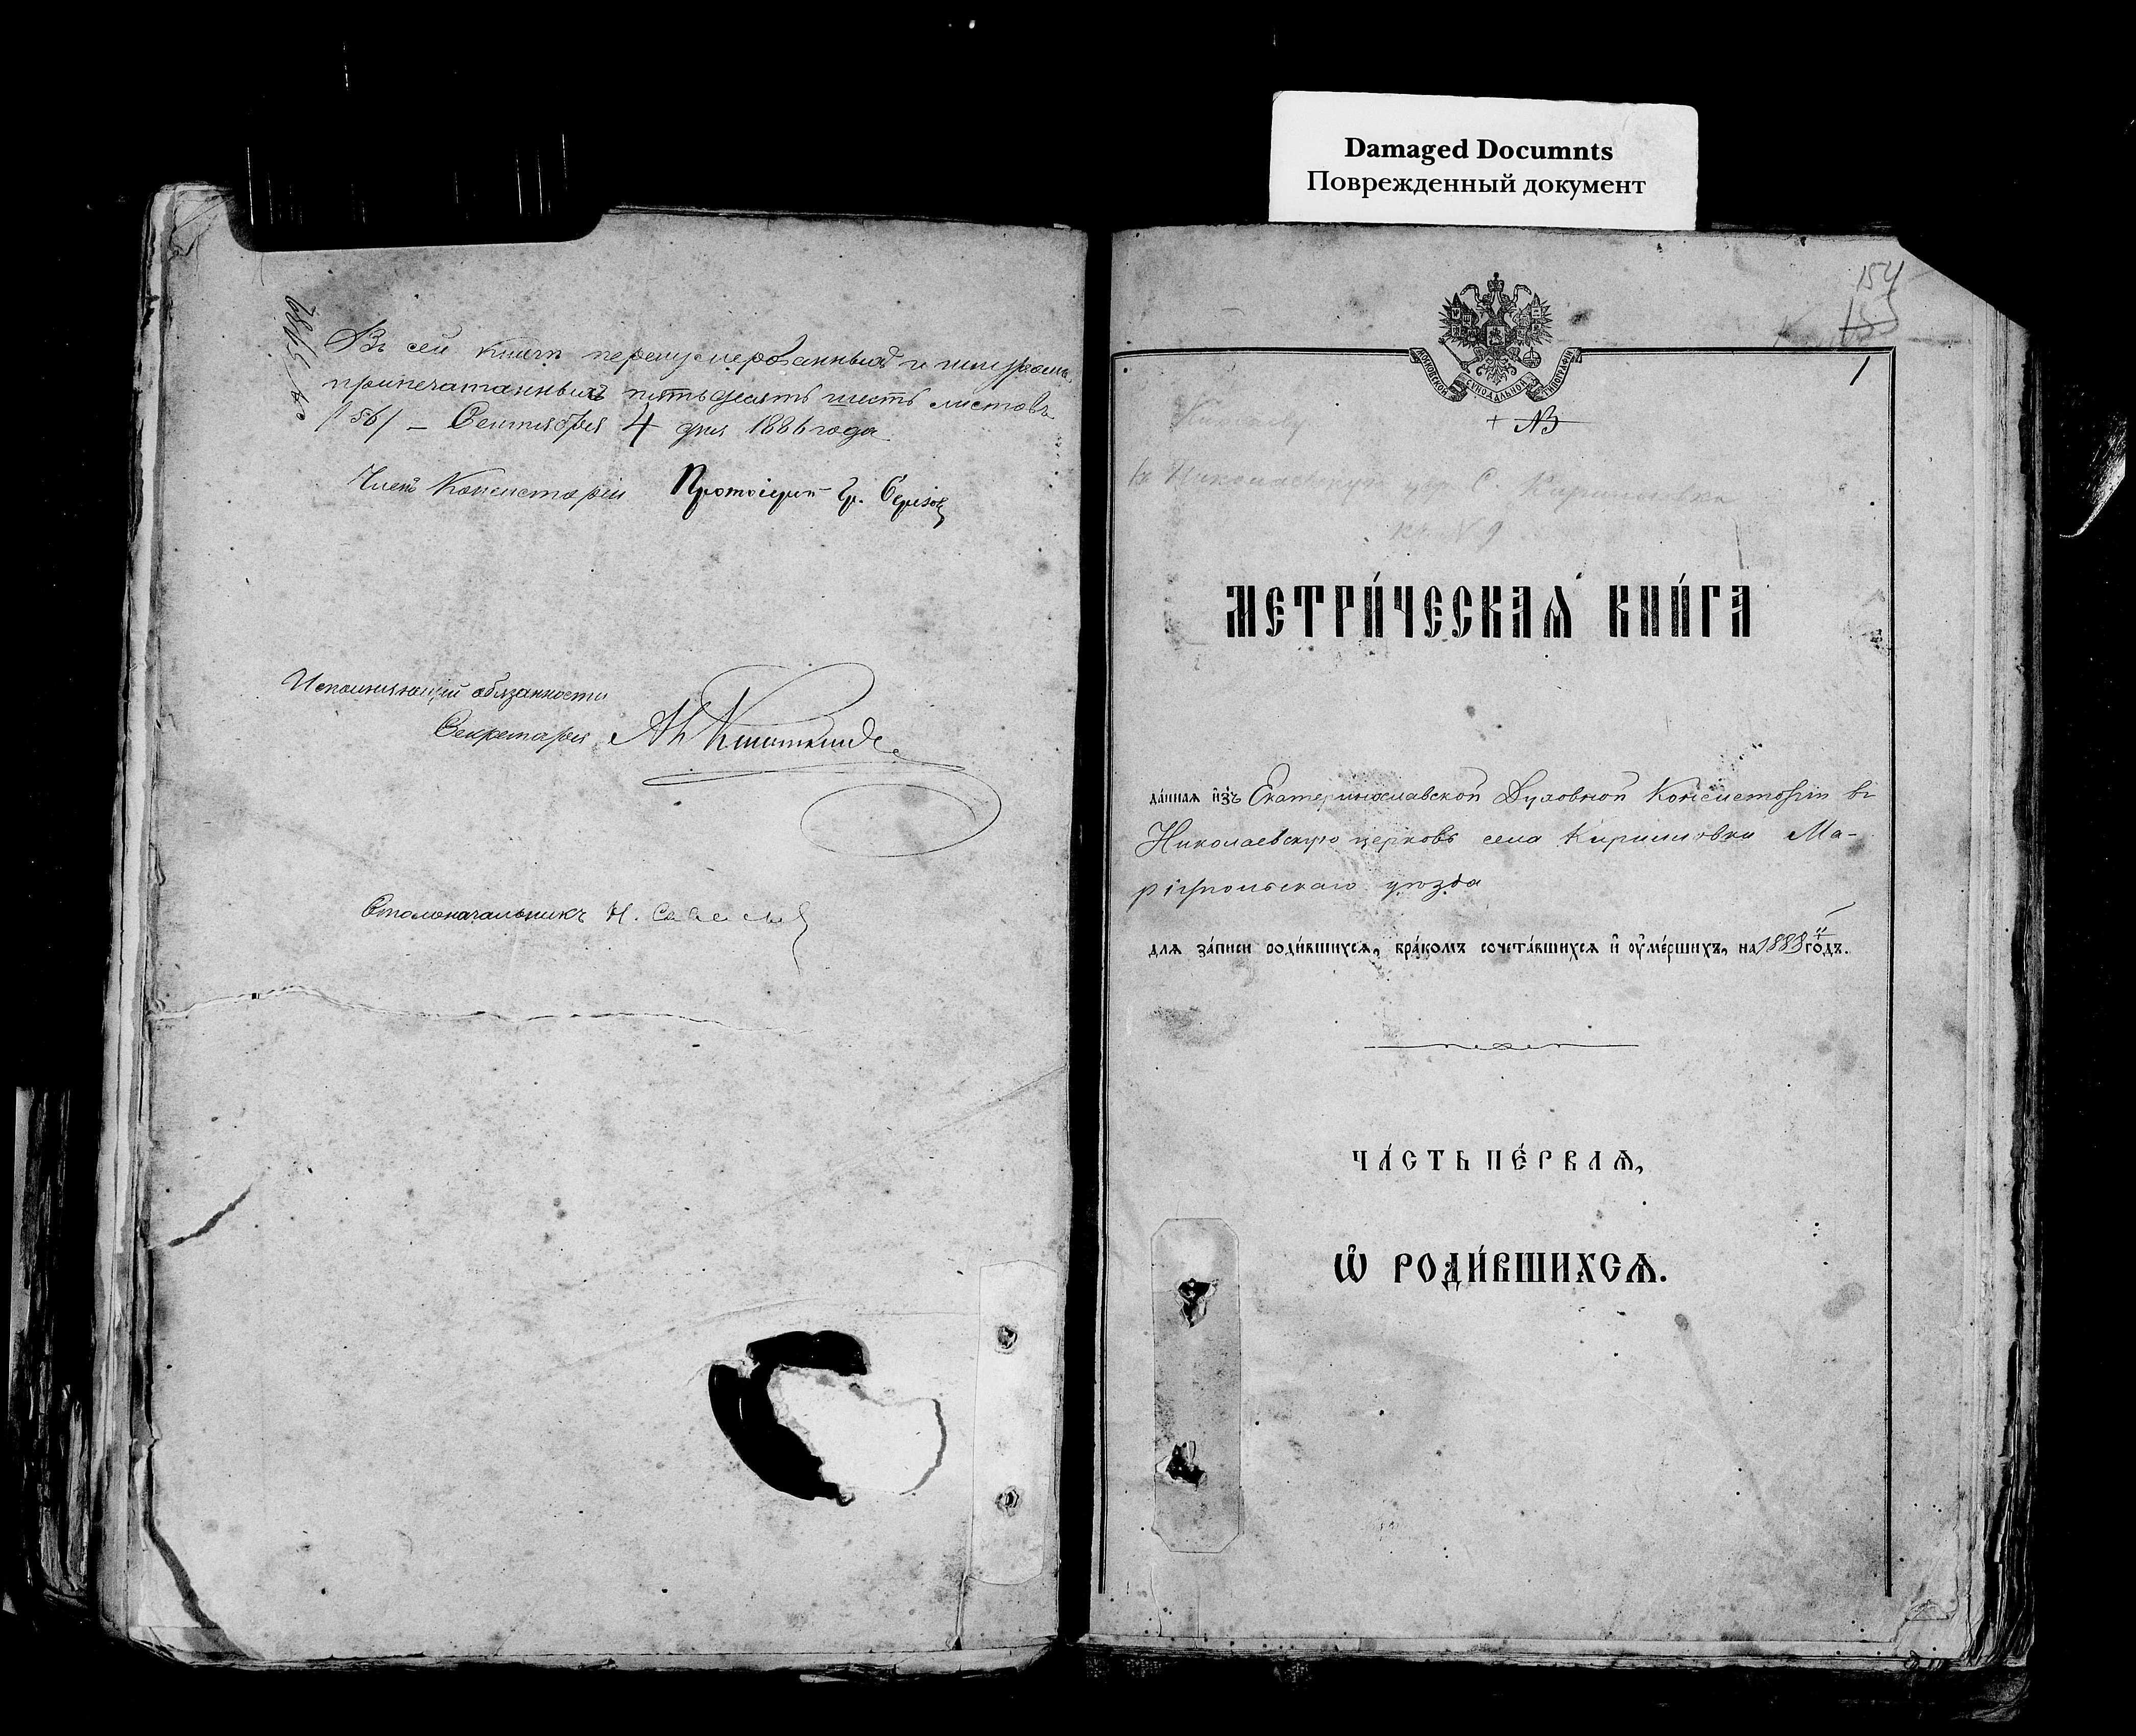 Damaged Documnts
Поврежденный документ
Въ сей книгѣ перенумерованныхъ и шнуромъ
припечатанныхъ пятьдесятъ шесть листовъ
/56/ – Сентября 4 дня 1886 года
Членъ Консисторіи Протоіерей Гр.
Исполняющій обязанности
Секретаря
Столоначальникъ Н.
154
155
1
МОСКОВСКОЙ СѴНОДАЛЬНОЙ ТИПОГРАФІИ
въ Николаевскую цер. С. Кирилловка
№ 9
МЕТРИ́ЧЕСКАѦ КНИ́ГА
да́ннаѧ и҆з̾ Екатеринославской Духовной Консисторіи въ
Николаевскую церковь села Кирилловки Ма-
ріупольскаго уѣзда
длѧ за́писи роди́вшихсѧ, бра́комъ сочета́вшихсѧ и҆ ᲂу҆ме́ршихъ, на 1888 й го́дъ.
ЧА́СТЬ ПЕ́РВАѦ,
Ѽ РОДИ́ВШИХСѦ.